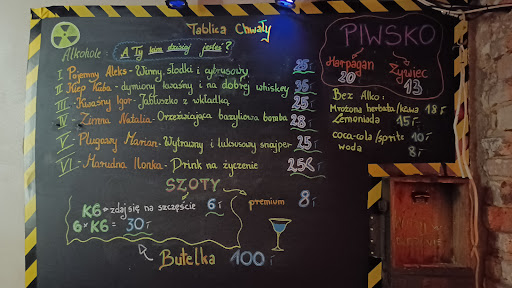 Tablica Chwały
Alkohole
A Ty kim dzisiaj jesteś?
I. Pojemny Aleks - Winny, słodki i cytrusowy 25
II Kiep Kuba - dymiony kwaśny i na dobrej whiskey 35
III - Kwaśny Igor - Jabłuszko z wkładką 25
IV - Zimna Natalia - Orzeźwiająca bazyliowa bomba 28
V - Plugawy Marian - Wytrawny i luksusowy snajper 25
VI - Marudna Ilonka - Drink na życzenie 25
SZOTY
K6 - zdaj się na szczęście 6
6 x K6 = 30
premium 8
Butelka 100
PIWSKO
Harpagan 20
Żywiec 13
Bez Alko:
Mrożona herbata/kawa 18
Lemoniada 15
coca-cola/sprite 10
woda 8